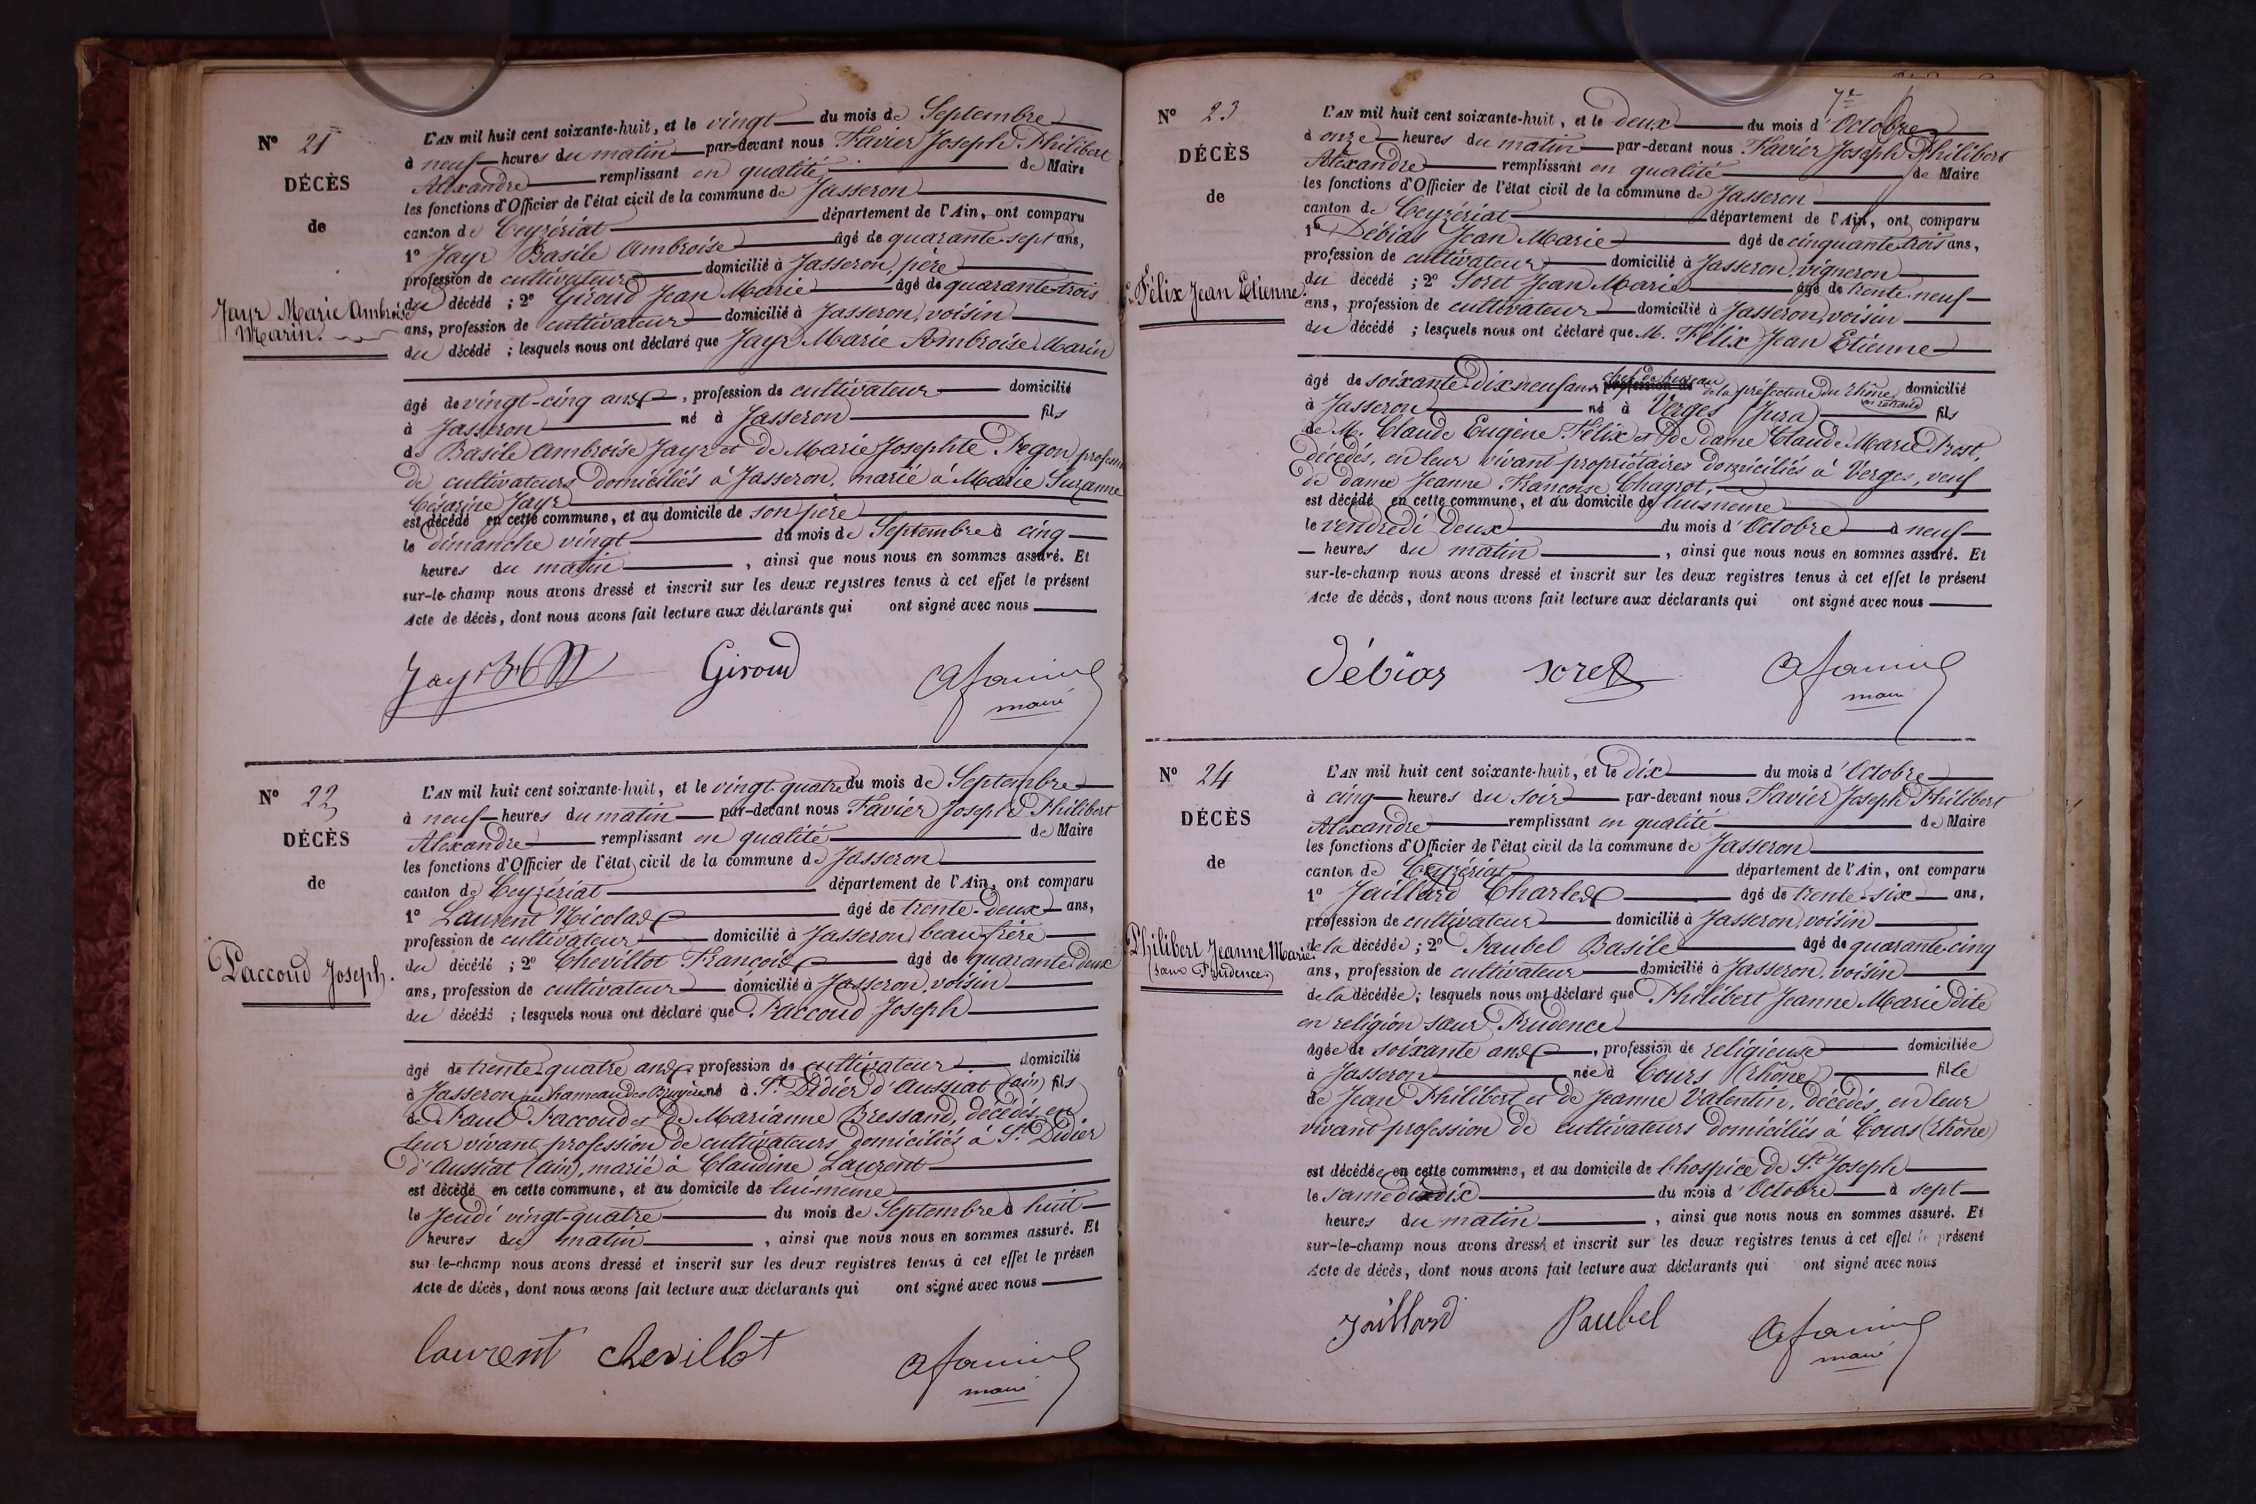 N° 21
DÉCÈS
de
Jayr Marie Ambroise
Marin.
L'AN mil huit cent soixante-huit, et le vingt du mois de Septembre
à neuf heures du matin par-devant nous Favier Joseph Philibert
Alexandre remplissant en qualité de Maire
les fonctions d'Officier de l'état civil de la commune de Jasseron
canton de Ceyzériat département de l'Ain, ont comparu
1° Jayr Basile Ambroise âgé de quarante-sept ans,
profession de cultivateur domicilié à Jasseron, père
du décédé ; 2° Giroud Jean Marie âgé de quarante-trois
ans, profession de cultivateur domicilié à Jasseron, voisin
du décédé ; lesquels nous ont déclaré que Jayr Marie Ambroise Marin
âgé de vingt-cinq ans, profession de cultivateur domicilié
à Jasseron né à Jasseron fils
de Basile Ambroise Jayr et de Marie Josephte Pegon profession
de cultivateurs domiciliés à Jasseron, marié à Marie Suzanne
Césarine Jayr
est décédé en cette commune, et au domicile de son père
le dimanche vingt du mois de Septembre à cinq
heures du matin, ainsi que nous nous en sommes assuré. Et
sur-le-champ nous avons dressé et inscrit sur les deux registres tenus à cet effet le présent
Acte de décès, dont nous avons fait lecture aux déclarants qui ont signé avec nous
Jayr Giroud
maire
N° 22
DÉCÈS
de
Paccoud Joseph.
L'AN mil huit cent soixante-huit, et le vingt-quatre du mois de Septembre
à neuf heures du matin par-devant nous Favier Joseph Philibert
Alexandre remplissant en qualité de Maire
les fonctions d'Officier de l'état civil de la commune de Jasseron
canton de Ceyzériat département de l'Ain, ont comparu
1° Laurent Nicolas âgé de trente-deux ans,
profession de cultivateur domicilié à Jasseron, beau-frère
du décédé ; 2° Chevillot François âgé de quarante-deux
ans, profession de cultivateur domicilié à Jasseron, voisin
du décédé ; lesquels nous ont déclaré que Paccoud Joseph
âgé de trente-quatre ans, profession de cultivateur domicilié
à Jasseron au hameau des Bruyères né à St Didier d'Aussiat (ain) fils
de Paul Paccoud et de Marianne Bressand, décédés, en
leur vivant profession de cultivateurs domiciliés à St Didier
d'Aussiat (ain), marié à Claudine Laurent
est décédé en cette commune, et au domicile de lui-meme
le Jeudi vingt-quatre du mois de Septembre à huit
heures du matin, ainsi que nous nous en sommes assuré. Et
sur le-champ nous avons dressé et inscrit sur les deux registres tenus à cet effet le présen
Acte de décès, dont nous avons fait lecture aux déclarants qui ont signé avec nous
laurent chevillot
maire
N° 23
DÉCÈS
de
Félix Jean Etienne.
L'AN mil huit cent soixante-huit, et le deux du mois d'Octobre
à onze heures du matin par-devant nous Favier Joseph Philibert
Alexandre remplissant en qualité de Maire
les fonctions d'Officier de l'état civil de la commune de Jasseron
canton de Ceyzériat département de l'Ain, ont comparu
1° Débias Jean Marie âgé de cinquante-trois ans,
profession de cultivateur domicilié à Jasseron, vigneron
du décédé ; 2° Soret Jean Marie âgé de trente-neuf
ans, profession de cultivateur domicilié à Jasseron, voisin
du décédé ; lesquels nous ont déclaré que M. Félix Jean Etienne
âgé de soixante-dix neuf ans profession de chef de bureau de la préfecture du Rhône en retraite domicilié
à Jasseron né à Verges (Jura) fils
de M. Claude Eugène Félix et de dame Claude Marie Prost,
décédés, en leur vivant propriétaires domiciliés à Verges, veuf
de dame Jeanne Françoise Chagrot,
est décédé en cette commune, et au domicile de lui meme
le vendredi deux du mois d'Octobre à neuf
heures du matin, ainsi que nous nous en sommes assuré. Et
sur-le-champ nous avons dressé et inscrit sur les deux registres tenus à cet effet le présent
Acte de décès, dont nous avons fait lecture aux déclarants qui ont signé avec nous
Débias soret
maire
N° 24
DÉCÈS
de
Philibert Jeanne Marie
(sœur Prudence)
L'AN mil huit cent soixante-huit, et le dix du mois d'Octobre
à cinq heures du soir par-devant nous Favier Joseph Philibert
Alexandre remplissant en qualité de Maire
les fonctions d'Officier de l'état civil de la commune de Jasseron
canton de Ceyzériat département de l'Ain, ont comparu
1° Jaillard Charles âgé de trente-six ans,
profession de cultivateur domicilié à Jasseron, voisin
de la décédée ; 2° Paubel Basile âgé de quarante-cinq
ans, profession de cultivateur domicilié à Jasseron, voisin
de la décédée ; lesquels nous ont déclaré que Philibert Jeanne Marie dite
en religion sœur Prudence
âgée de soixante ans, profession de religieuse domiciliée
à Jasseron née à Cours (Rhône) fille
de Jean Philibert et de Jeanne Valentin, décédés, en leur
vivant profession de cultivateurs domiciliés à Cours (Rhône)
est décédée en cette commune, et au domicile de l'hospice de St Joseph
le samedi dix du mois d'Octobre à sept
heures du matin, ainsi que nous nous en sommes assuré. Et
sur-le-champ nous avons dressé et inscrit sur les deux registres tenus à cet effet le présent
Acte de décès, dont nous avons fait lecture aux déclarants qui ont signé avec nous
Jaillard Paubel
maire